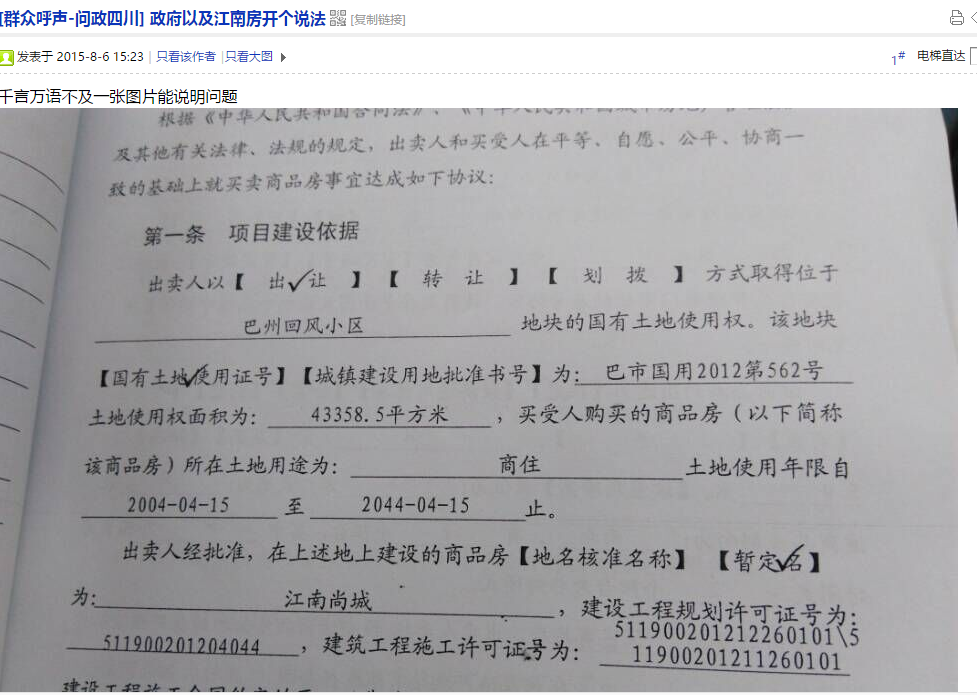 [群众呼声-问政四川] 政府以及江南房开个说法 [复制链接]
发表于 2015-8-6 15:23 | 只看该作者 | 只看大图
1# 电梯直达
千言万语不及一张图片能说明问题
根据《中华人民共和国合同法》、《中华人民共和国城市房地产
及其他有关法律、法规的规定，出卖人和买受人在平等、自愿、公平、协商一
致的基础上就买卖商品房事宜达成如下协议：
第一条 项目建设依据
出卖人以【 出✓让 】【 转 让 】【 划 拨 】方式取得位于
巴州回风小区 地块的国有土地使用权。该地块
【国有土地使用证号】【城镇建设用地批准书号】为：巴市国用2012第562号
土地使用权面积为： 43358.5平方米 ，买受人购买的商品房（以下简称
该商品房）所在土地用途为： 商住 土地使用年限自
2004-04-15 至 2044-04-15 止。
出卖人经批准，在上述地上建设的商品房【地名核准名称】【暂定名】
为： 江南尚城 ，建设工程规划许可证号为：
511900201204044 ，建筑工程施工许可证号为： 511900201212260101\5
11900201211260101